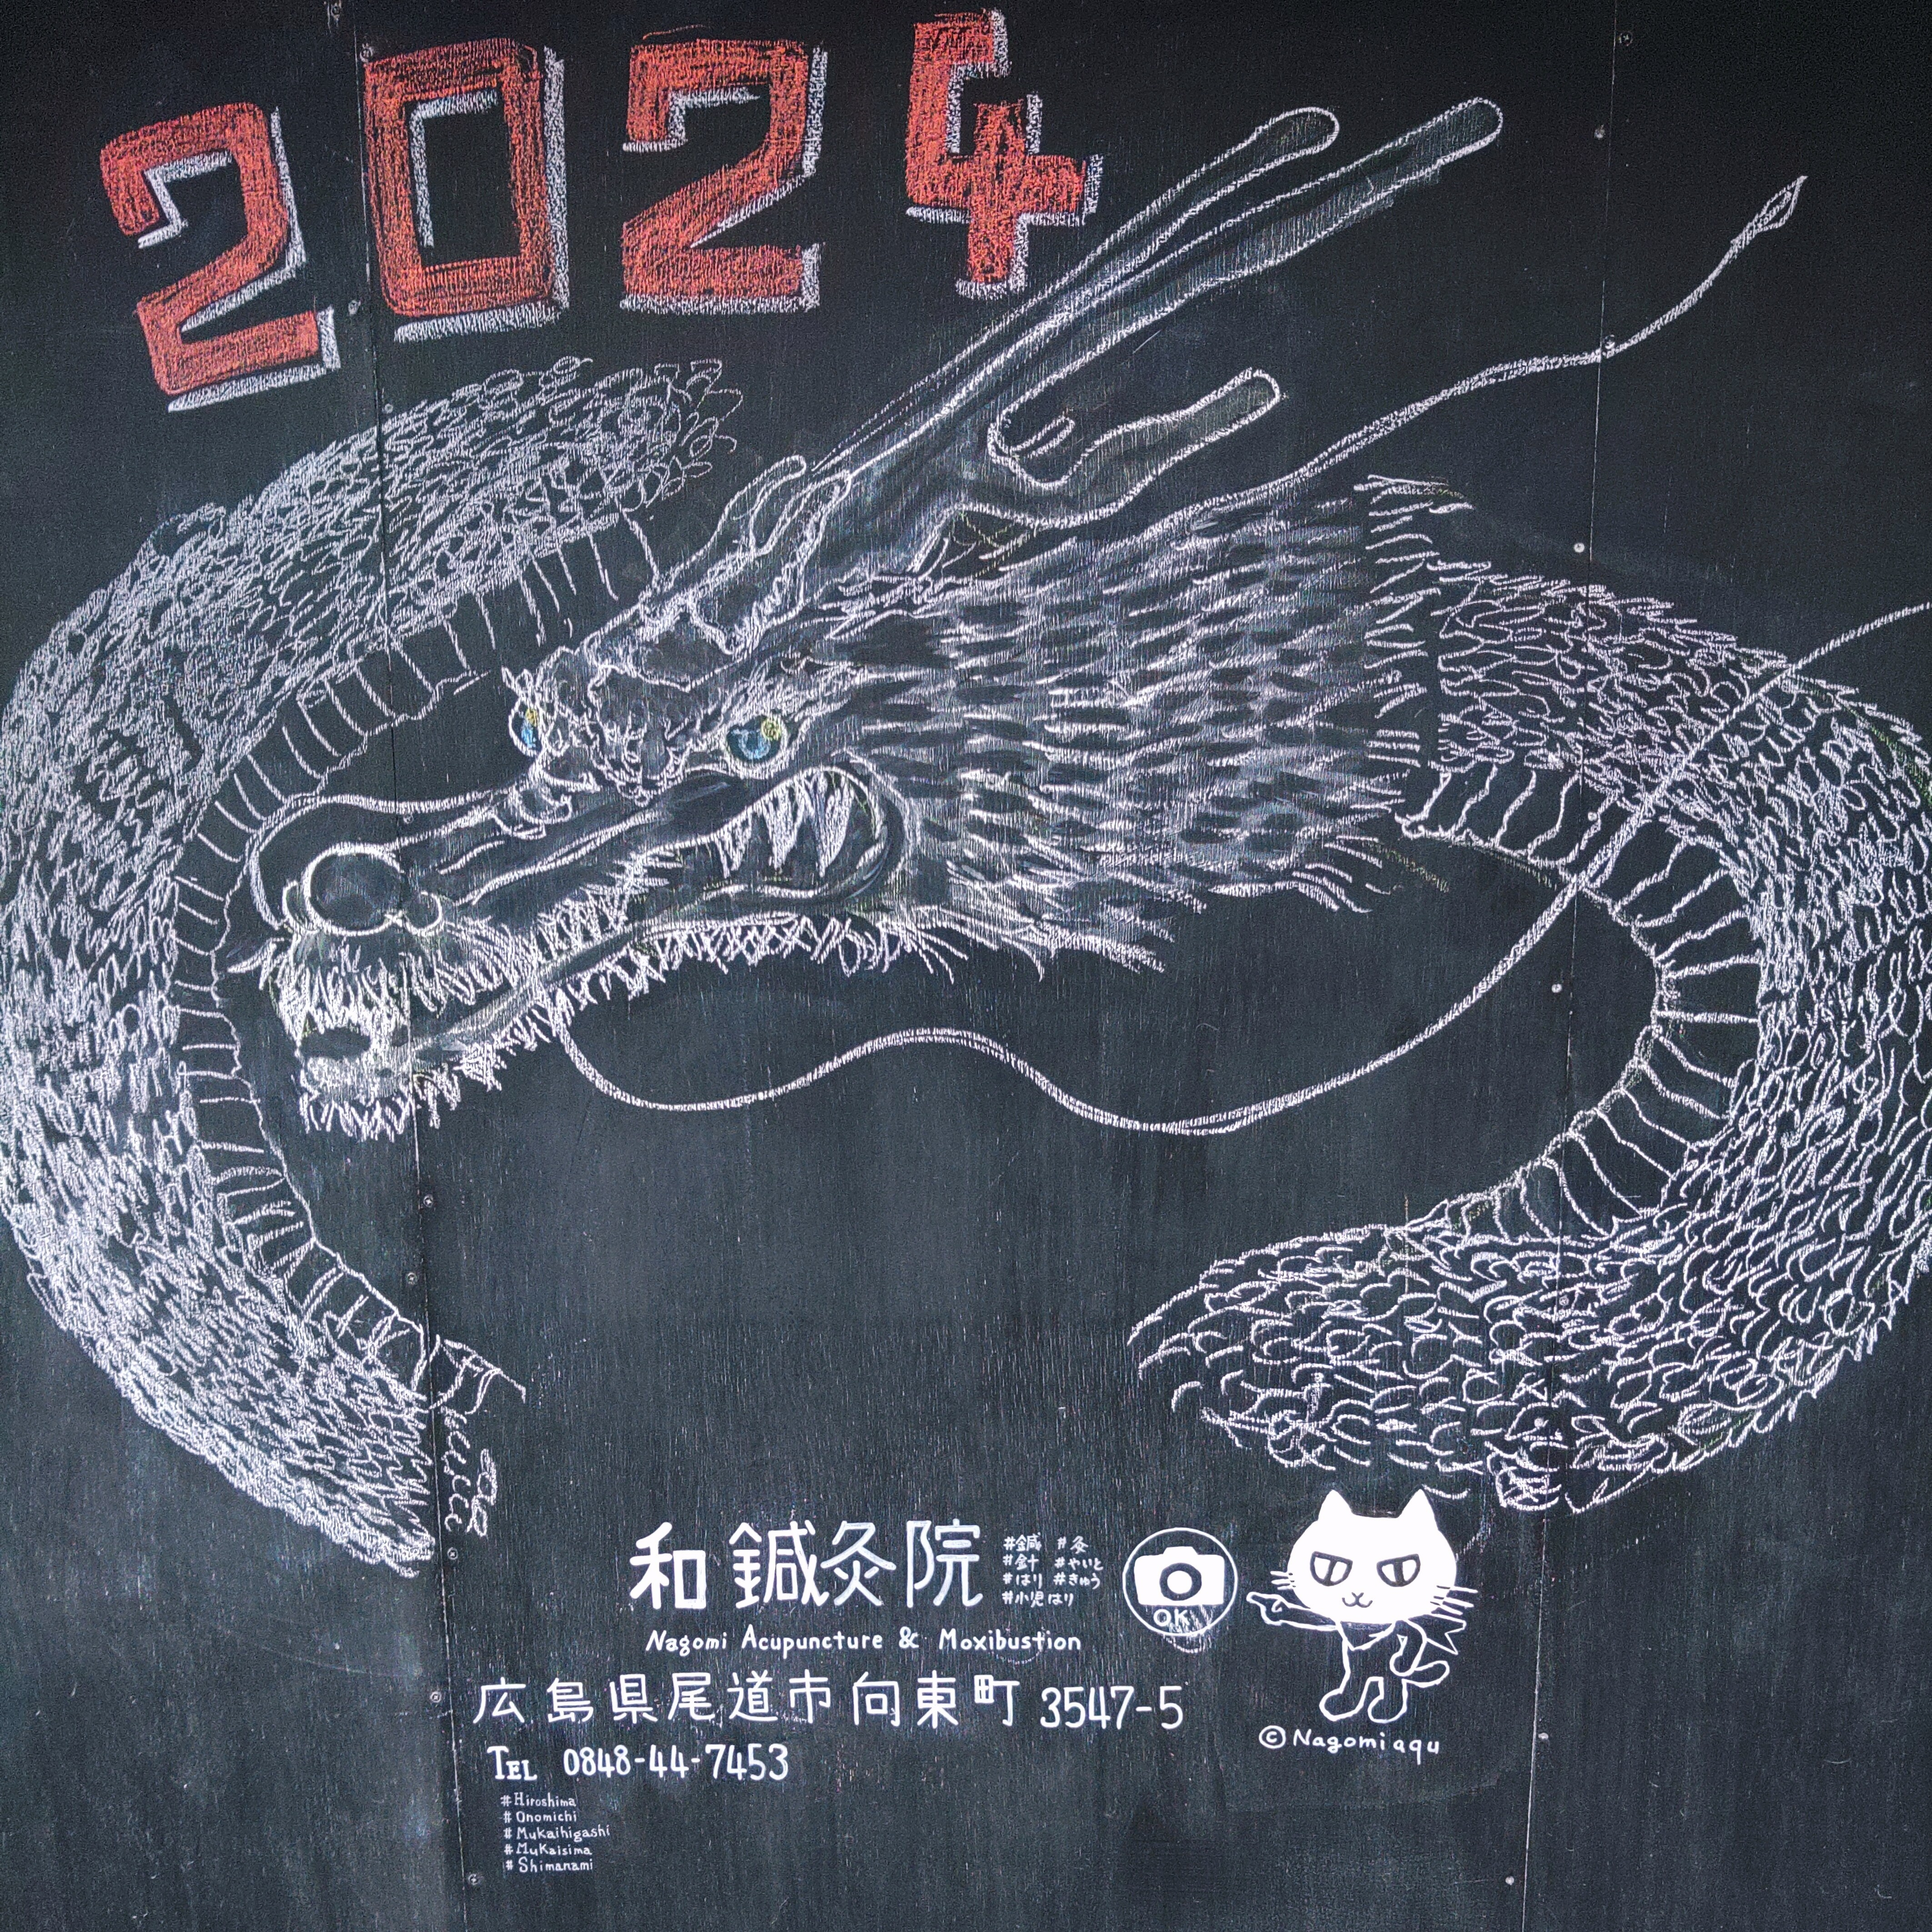 2024
和鍼灸院
#鍼 #灸
#針 #やいと
#はり #きゅう
#小児はり
OK
Nagomi Acupuncture & Moxibustion
広島県尾道市向東町3547-5
TEL 0848-44-7453
©Nagomiaqu
#Hiroshima
#Onomichi
#Mukaihigashi
#MuKaisima
#Shimanami